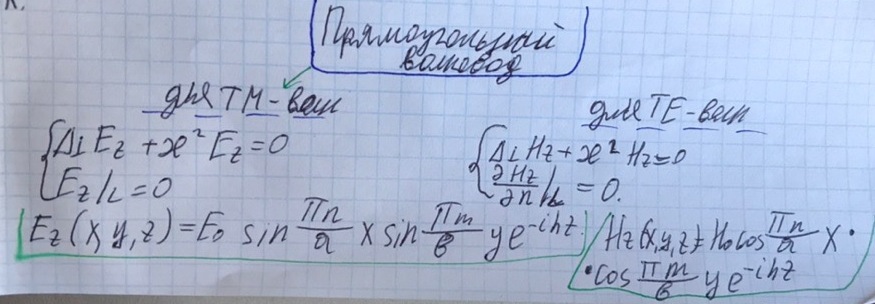 Прямоугольный
волновод
для TM-волн
для TE-волн
{Δ⊥Ez + æ²Ez = 0
{Ez|L = 0
{Δ⊥Hz + æ²Hz = 0
∂Hz/∂n|L = 0.
Ez(x,y,z) = E₀ sin πn/a x sin πm/b y e^-ihz
Hz(x,y,z) = H₀ cos πn/a x ·
· cos πm/b y e^-ihz